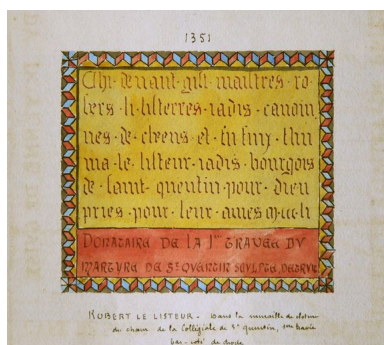 1351
Chi · devant · gist · maistres · ro-
bers · li · listerres · iadis · canoin
nes · de · cheens · et
ma · le · listeur · iadis · bourgois
de · saint · quentin · pour · dieu
pries · pour · leur · ames
DONATAIRE DE LA 1re TRAVEE DU
MARTYRE DE St QUENTIN SCULPTE
ROBERT LE LISTEUR - Dans la muraille de cloture
du chœur de la Collégiale de St Quentin,
bas-côté de droite